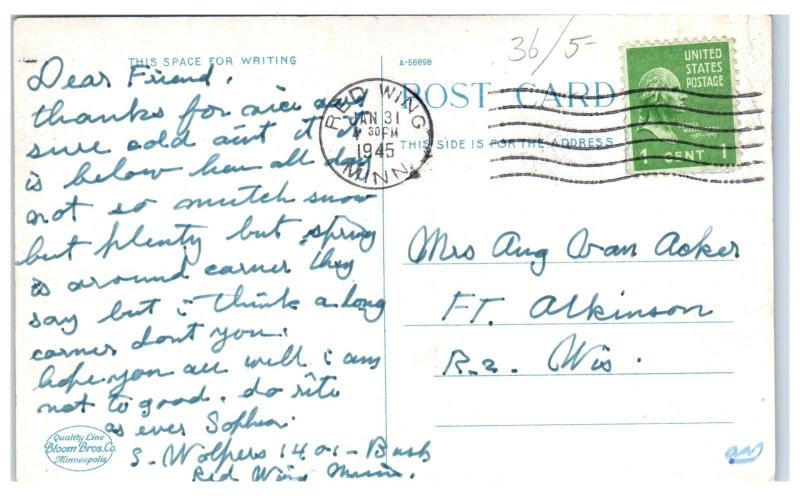 36/5-
THIS SPACE FOR WRITING
A-58898
POST CARD
THIS SIDE IS FOR THE ADDRESS
RED WING
JAN 31
4 30 PM
1945
MINN.
UNITED
STATES
POSTAGE
1 CENT 1
Dear Friend,
thanks for nice card
sure cold aint it it
is below hear all day
not so mutch snow
but plenty but spring
is around corner they
say but i think a long
corner dont you.
hope you are well i am
not to good. do rite
as ever Sophia.
S. Wolpers 1401 - Bush
Red Wing Minn.
Mrs Aug Van Acker
FT. Atkinson
R.2. Wis.
Quality Line
Bloom Bros. Co.
Minneapolis